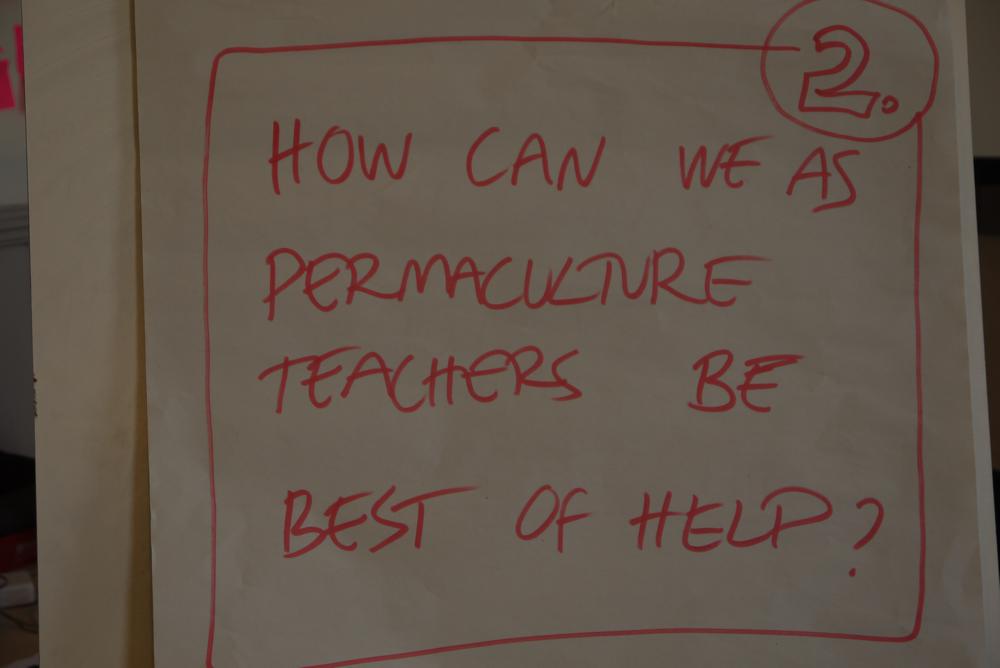 2.
HOW CAN WE AS
PERMACULTURE
TEACHERS BE
BEST OF HELP?